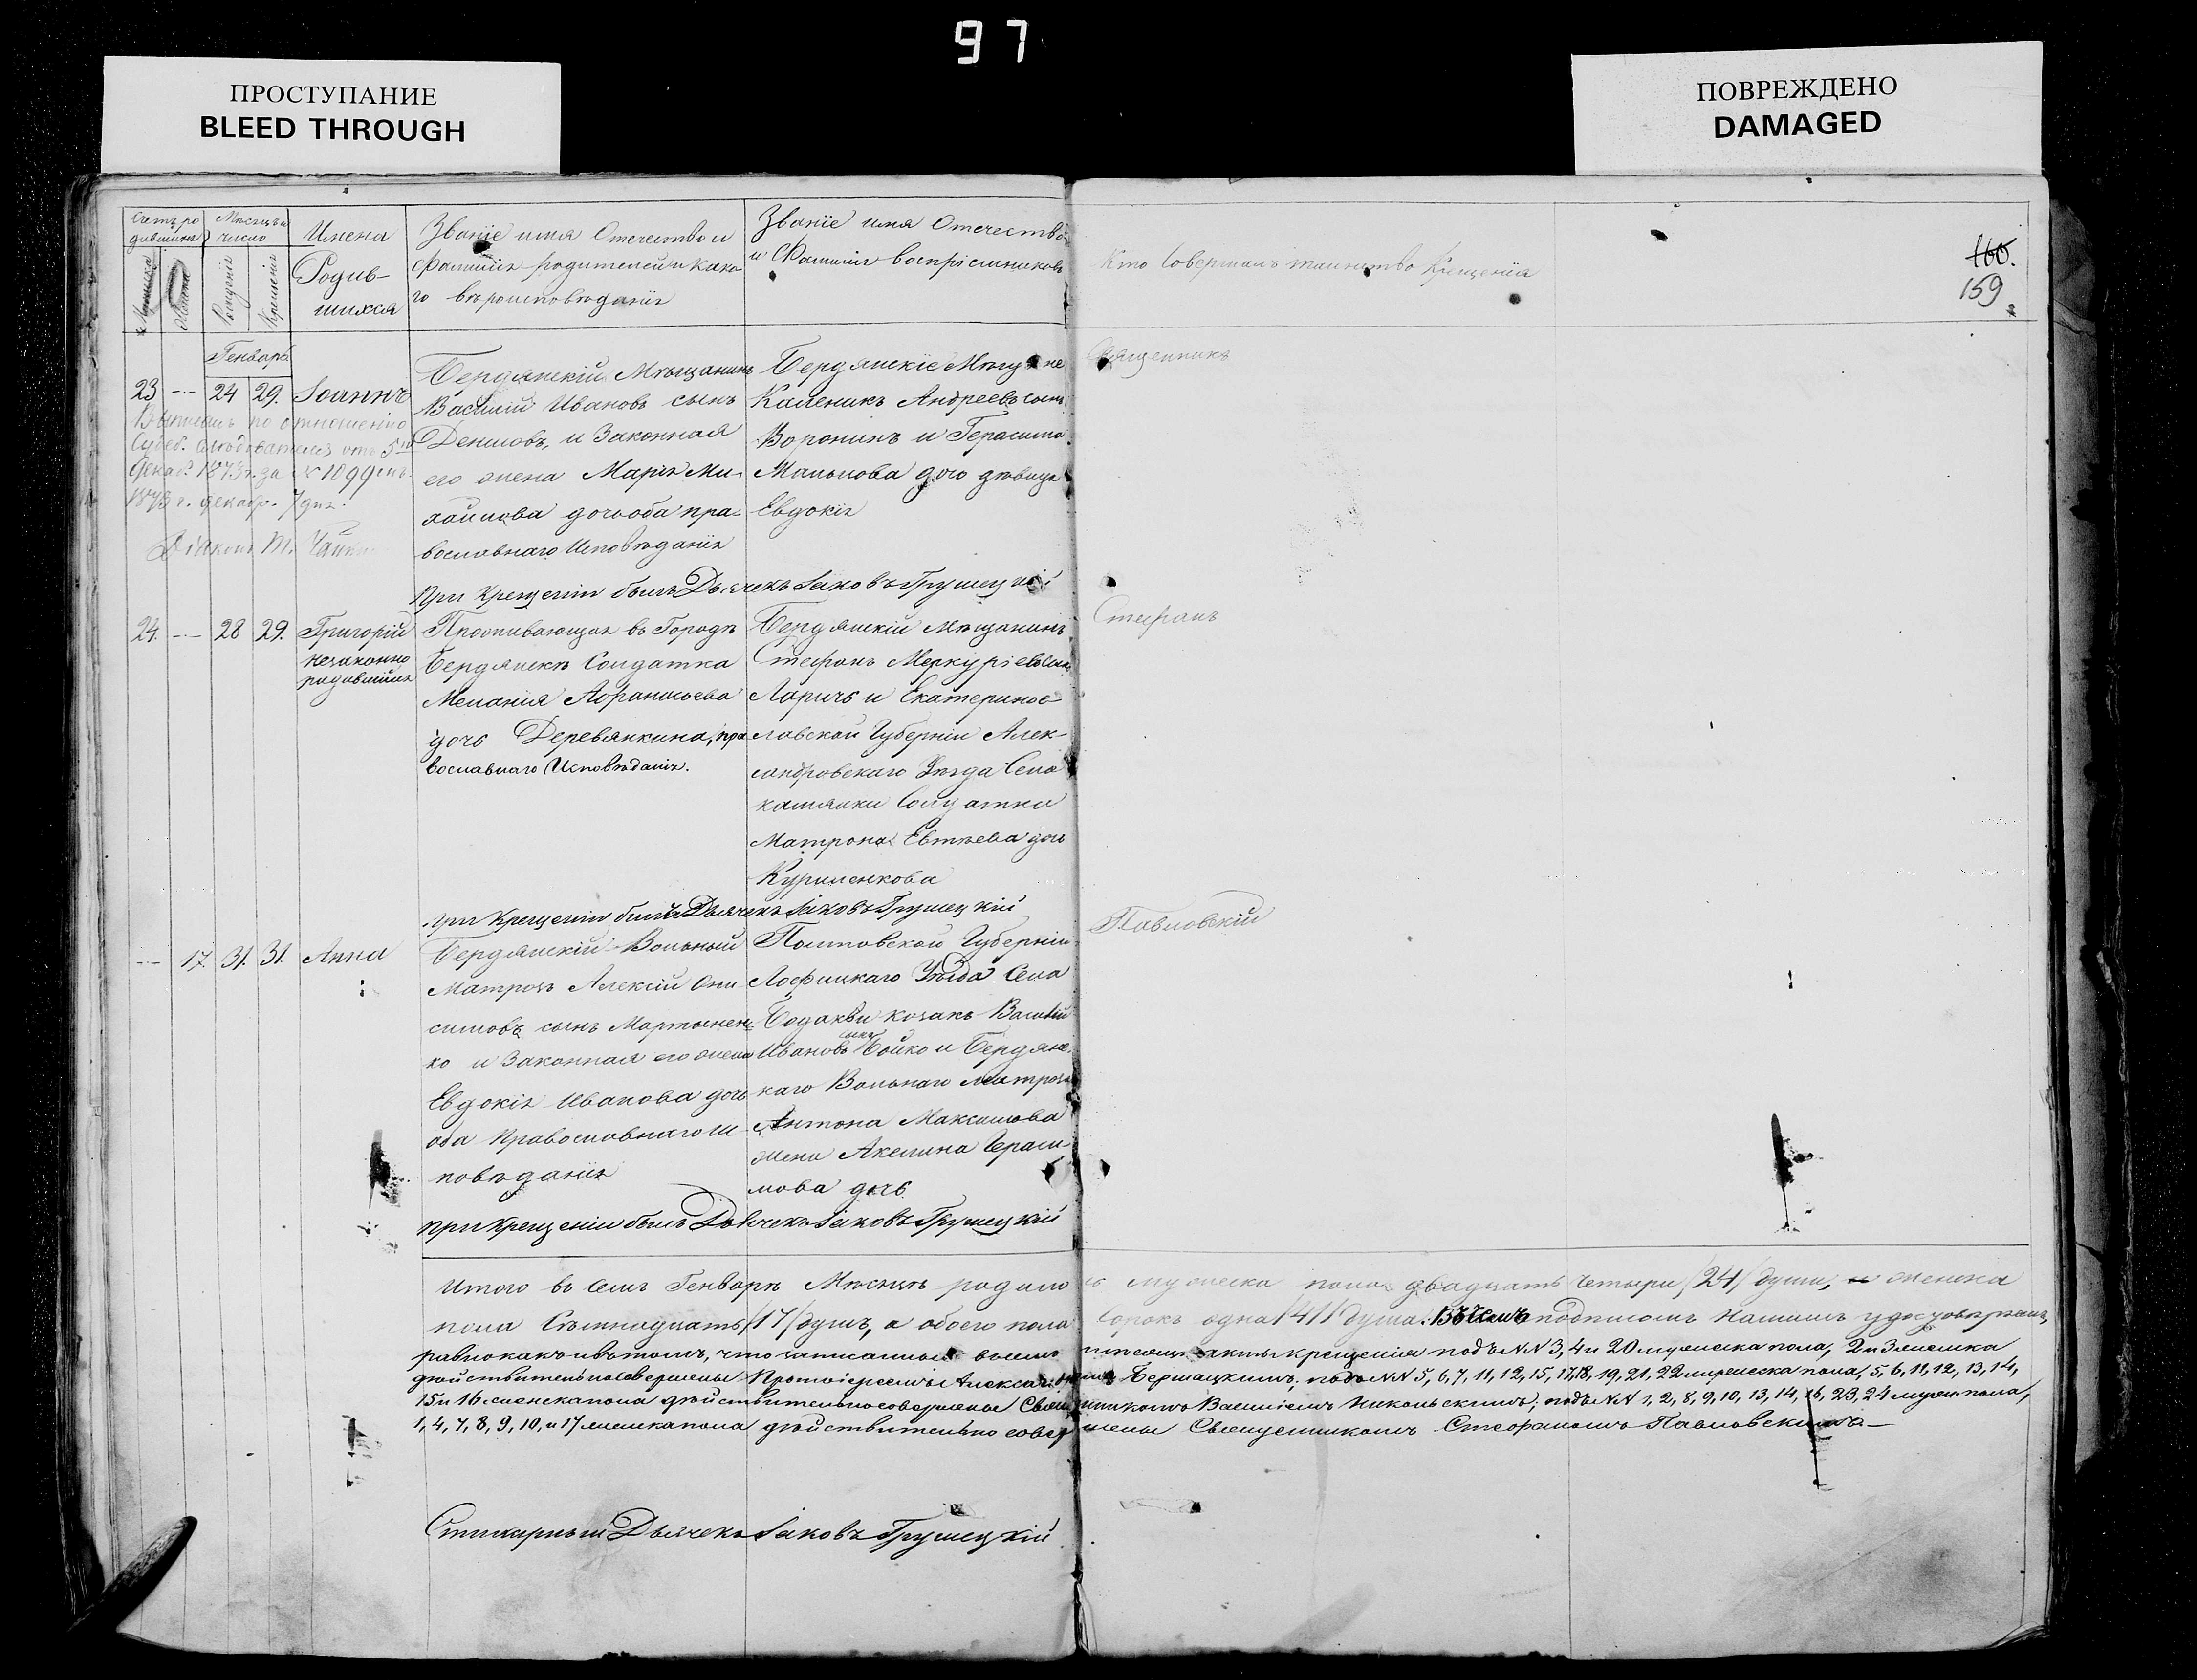 97
ПРОСТУПАНИЕ
BLEED THROUGH
ПОВРЕЖДЕНО
DAMAGED
160.
159
Счетъ родившихся
Мѣсяцъ и число
Имена Родившихся
Званіе имя Отечество и
фамилія родителей и како-
го вѣроисповѣданія
Званіе имя Отечество
и Фамилія воспріемниковъ
Кто Совершалъ таинство Крещенія
Мужеска
Женска
Рожденія
Крещенія
Генваря
23 -- 24 29. Іоаннъ
Бердянскій Мѣщанинъ
Василій Ивановъ сынъ
Денисовъ, и Законная
его жена Марія Ми-
хайлова дочь оба пра-
вославнаго Исповѣданія
Бердянскіе Мѣщане
Каленикъ Андреевъ сынъ
Воронинъ и Герасима
Малькова дочь дѣвица
Евдокія
по отношенію
Судеб. слѣдователя отъ 5го
Декаб. 1873 г. за № 1099
1873 г. декабр. 7 дня.
Діаконъ
При Крещеніи былъ Дьячекъ Іаковъ Грушецкій
24. -- 28 29. Григорій
незаконно
родившійся
Проживающая въ Городѣ
Бердянскѣ Солдатка
Меланія Афанасьева
дочь Деревянкина, пра
вославнаго Исповѣданія.
Бердянскій Мѣщанинъ
Стефанъ Меркуріевъ сынъ
Ларичъ и Екатеринос-
лавской Губерніи Алек-
сандровскаго Уѣзда Села
камянки Солдатка
Матрона Евтѣева дочь
Куриленкова
При Крещеніи былъ Дьячекъ Іаковъ Грушецкій
-- 17. 31. 31. Анна
Бердянскій Вольный
Матрозъ Алексій Они
симовъ сынъ Мартынен-
ко и Законная его жена
Евдокія Иванова дочь
оба Православнаго Ис-
повѣданія
Полтовской Губерніи
Лофицкаго Уѣзда Села
Бодакви козакъ Василій
Ивановъ сынъ Бойко и Бердянс-
каго Вольнаго Матроза
Антона Максимова
жена Акелина Гераси-
мова дочь
При Крещеніи былъ Дьячекъ Іаковъ Грушецкій
Священникъ
Стефанъ
Павловскій
Итого въ семъ Генварѣ Мѣсяцѣ родилось мужеска пола двадцать четыри /24/ души, и женска
пола Семнадцать /17/ душъ, а обоего пола Сорокъ одна /41/ душа. Въ чемъ подписомъ нашимъ удостовѣряемъ,
равно какъ и въ томъ, что записанныя въ семъ мѣсяцѣ акты крещенія подъ №№ 3, 4 и 20 мужеска пола, 2 и 3 женска
дѣйствительно совершены Протоіереемъ Бершацкимъ; подъ №№ 5, 6, 7, 11, 12, 15, 17, 18, 19, 21, 22 мужеска пола, 5, 6, 11, 12, 13, 14,
15 и 16 женска пола дѣйствительно совершены Священникомъ Василіемъ Никольскимъ; подъ №№ 1, 2, 8, 9, 10, 13, 14, 16, 23, 24 мужес. пола,
1, 4, 7, 8, 9, 10, и 17 женска пола дѣйствительно совершены Священникомъ Стефаномъ Павловскимъ.—
Стихарный Дьячекъ Іаковъ Грушецкій